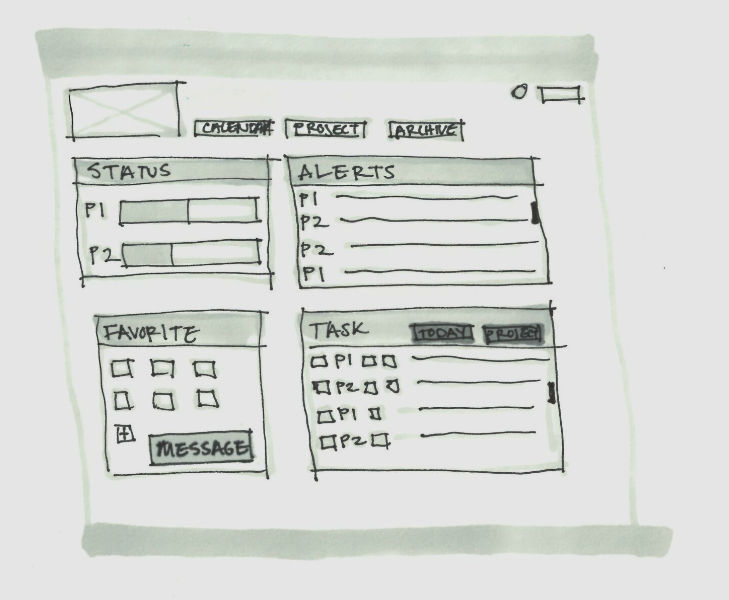 CALENDAR PROJECT ARCHIVE
STATUS
P1
P2
ALERTS
P1
P2
P2
P1
FAVORITE
MESSAGE
TASK TODAY PROJECT
P1
P2
P1
P2